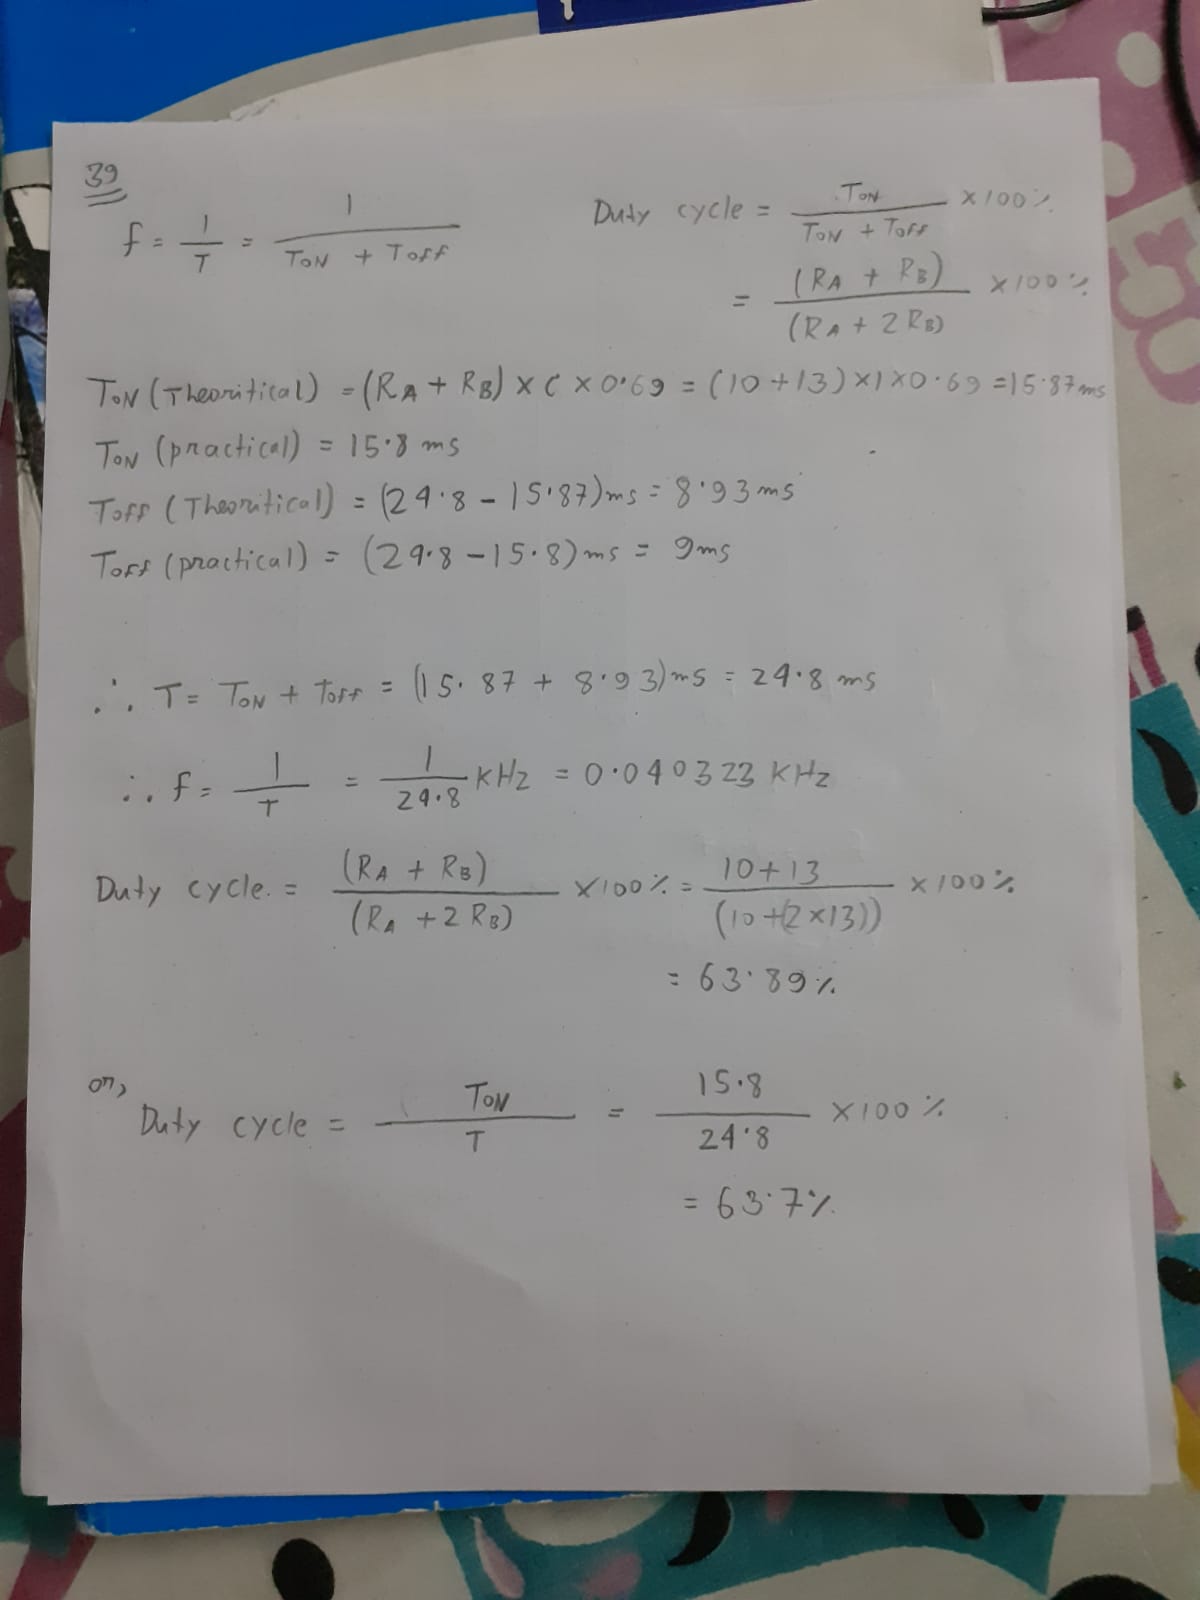 39
f = 1/T = 1/(TON + TOFF)
Duty cycle = TON/(TON + TOFF) × 100%
= (RA + RB)/(RA + 2RB) × 100%
TON (Theoritical) = (RA + RB) × C × 0.69 = (10 + 13) × 1 × 0.69 = 15.87 ms
TON (practical) = 15.8 ms
TOFF (Theoritical) = (24.8 - 15.87) ms = 8.93 ms
TOFF (practical) = (24.8 - 15.8) ms = 9 ms
∴ T = TON + TOFF = (15.87 + 8.93) ms = 24.8 ms
∴ f = 1/T = 1/24.8 KHz = 0.040323 KHz
Duty cycle. = (RA + RB)/(RA + 2RB) × 100% = 10 + 13/(10 + (2 × 13)) × 100%
= 63.89%
or,
Duty cycle = TON/T = 15.8/24.8 × 100%
= 63.7%